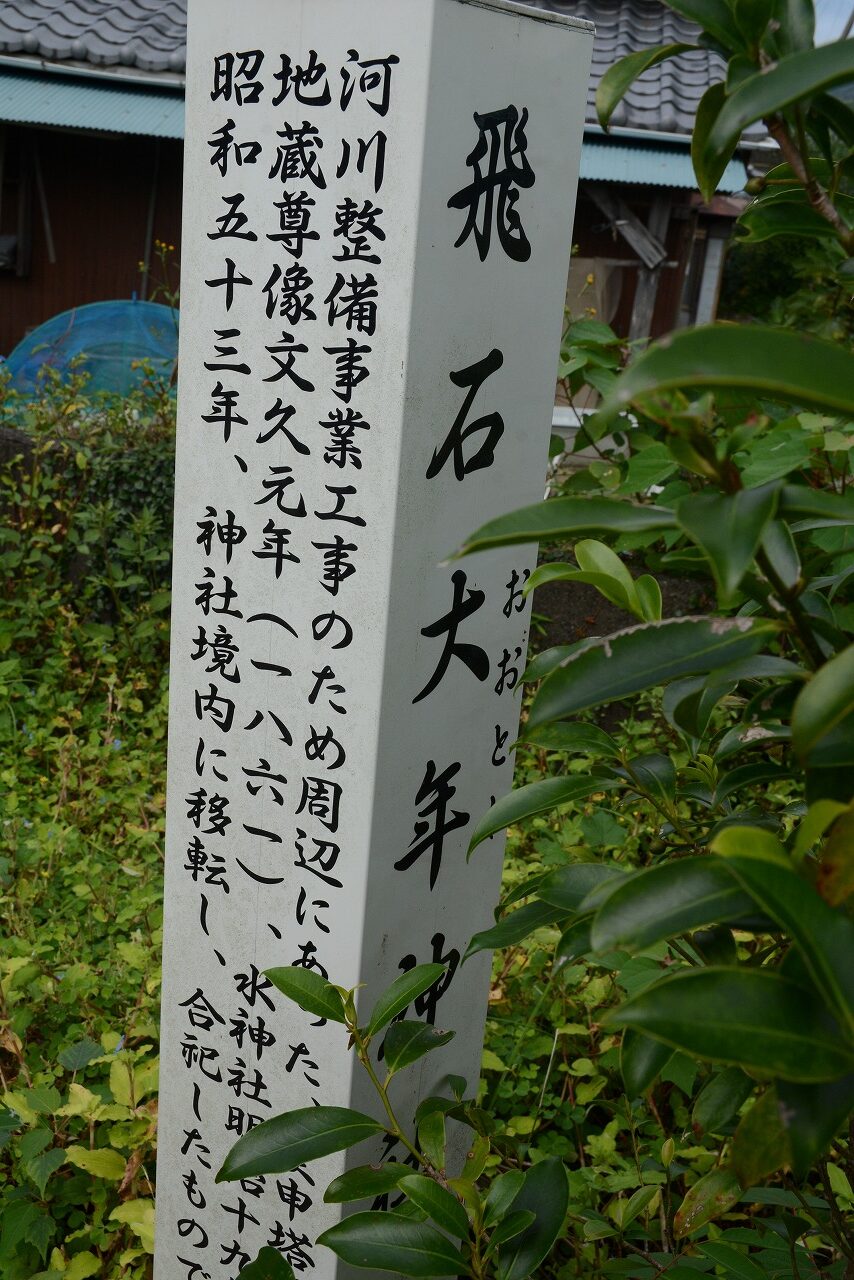 飛石大年神
おおとし
河川整備事業工事のため周辺にあった、庚申塔
地蔵尊像文久元年（一八六一）、水神社明治十九
昭和五十三年、神社境内に移転し、合祀したもので